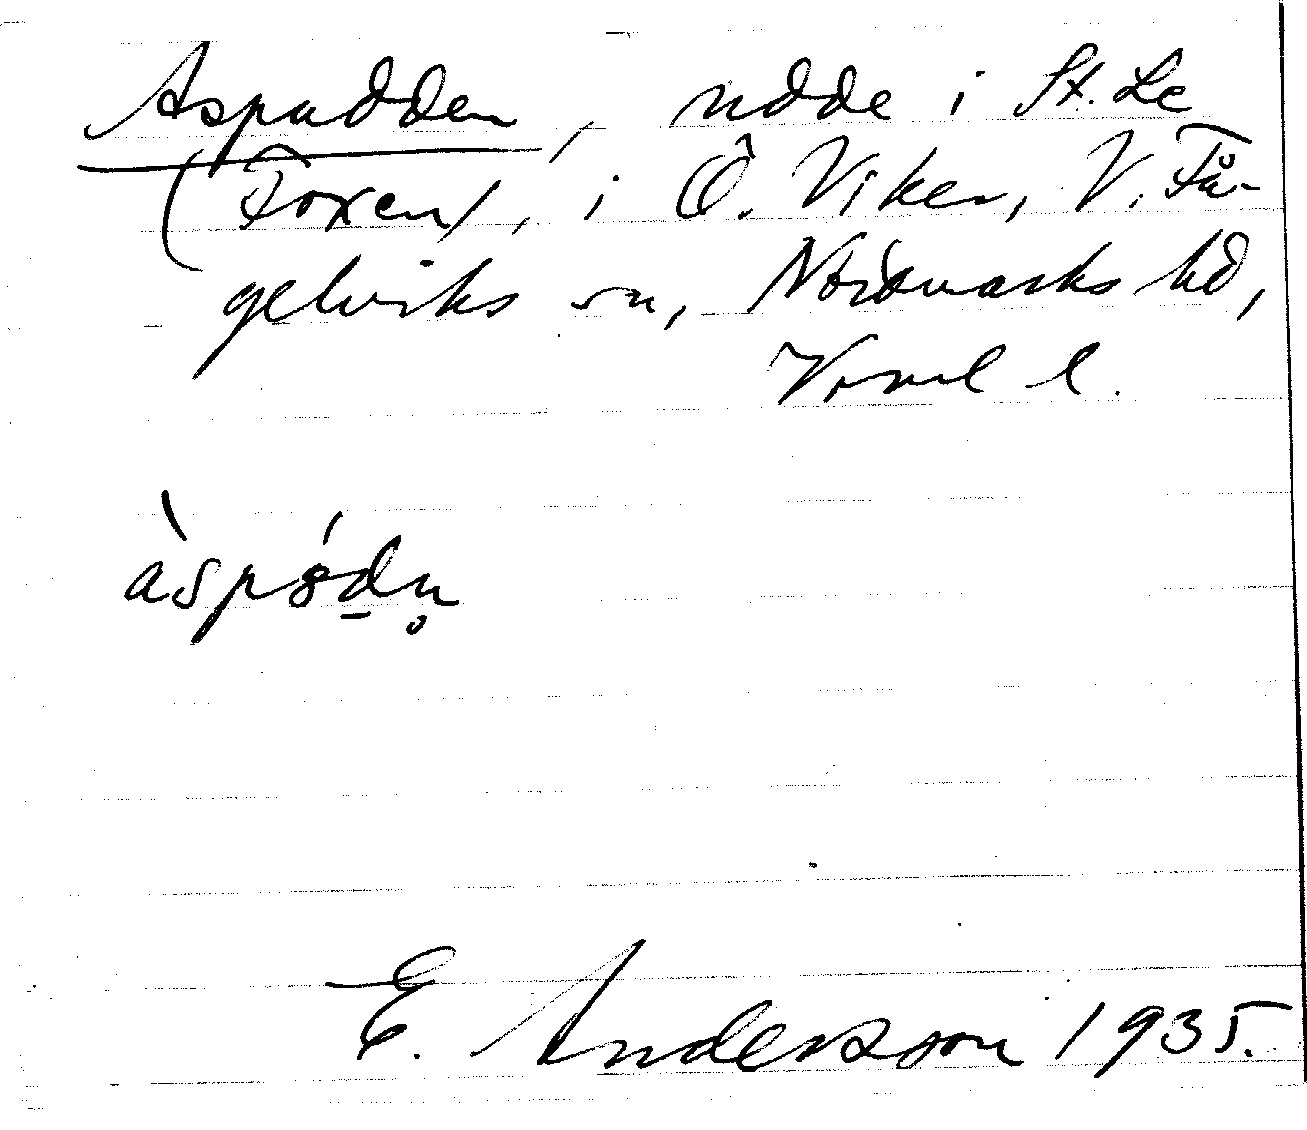 Aspudden, udde i St. Le
(Foxen), i Ö. Viker, V. Få-
gelviks sn, Nordmarks hd,
Vrml l.
àspódn̥
E. Andersson 1935.